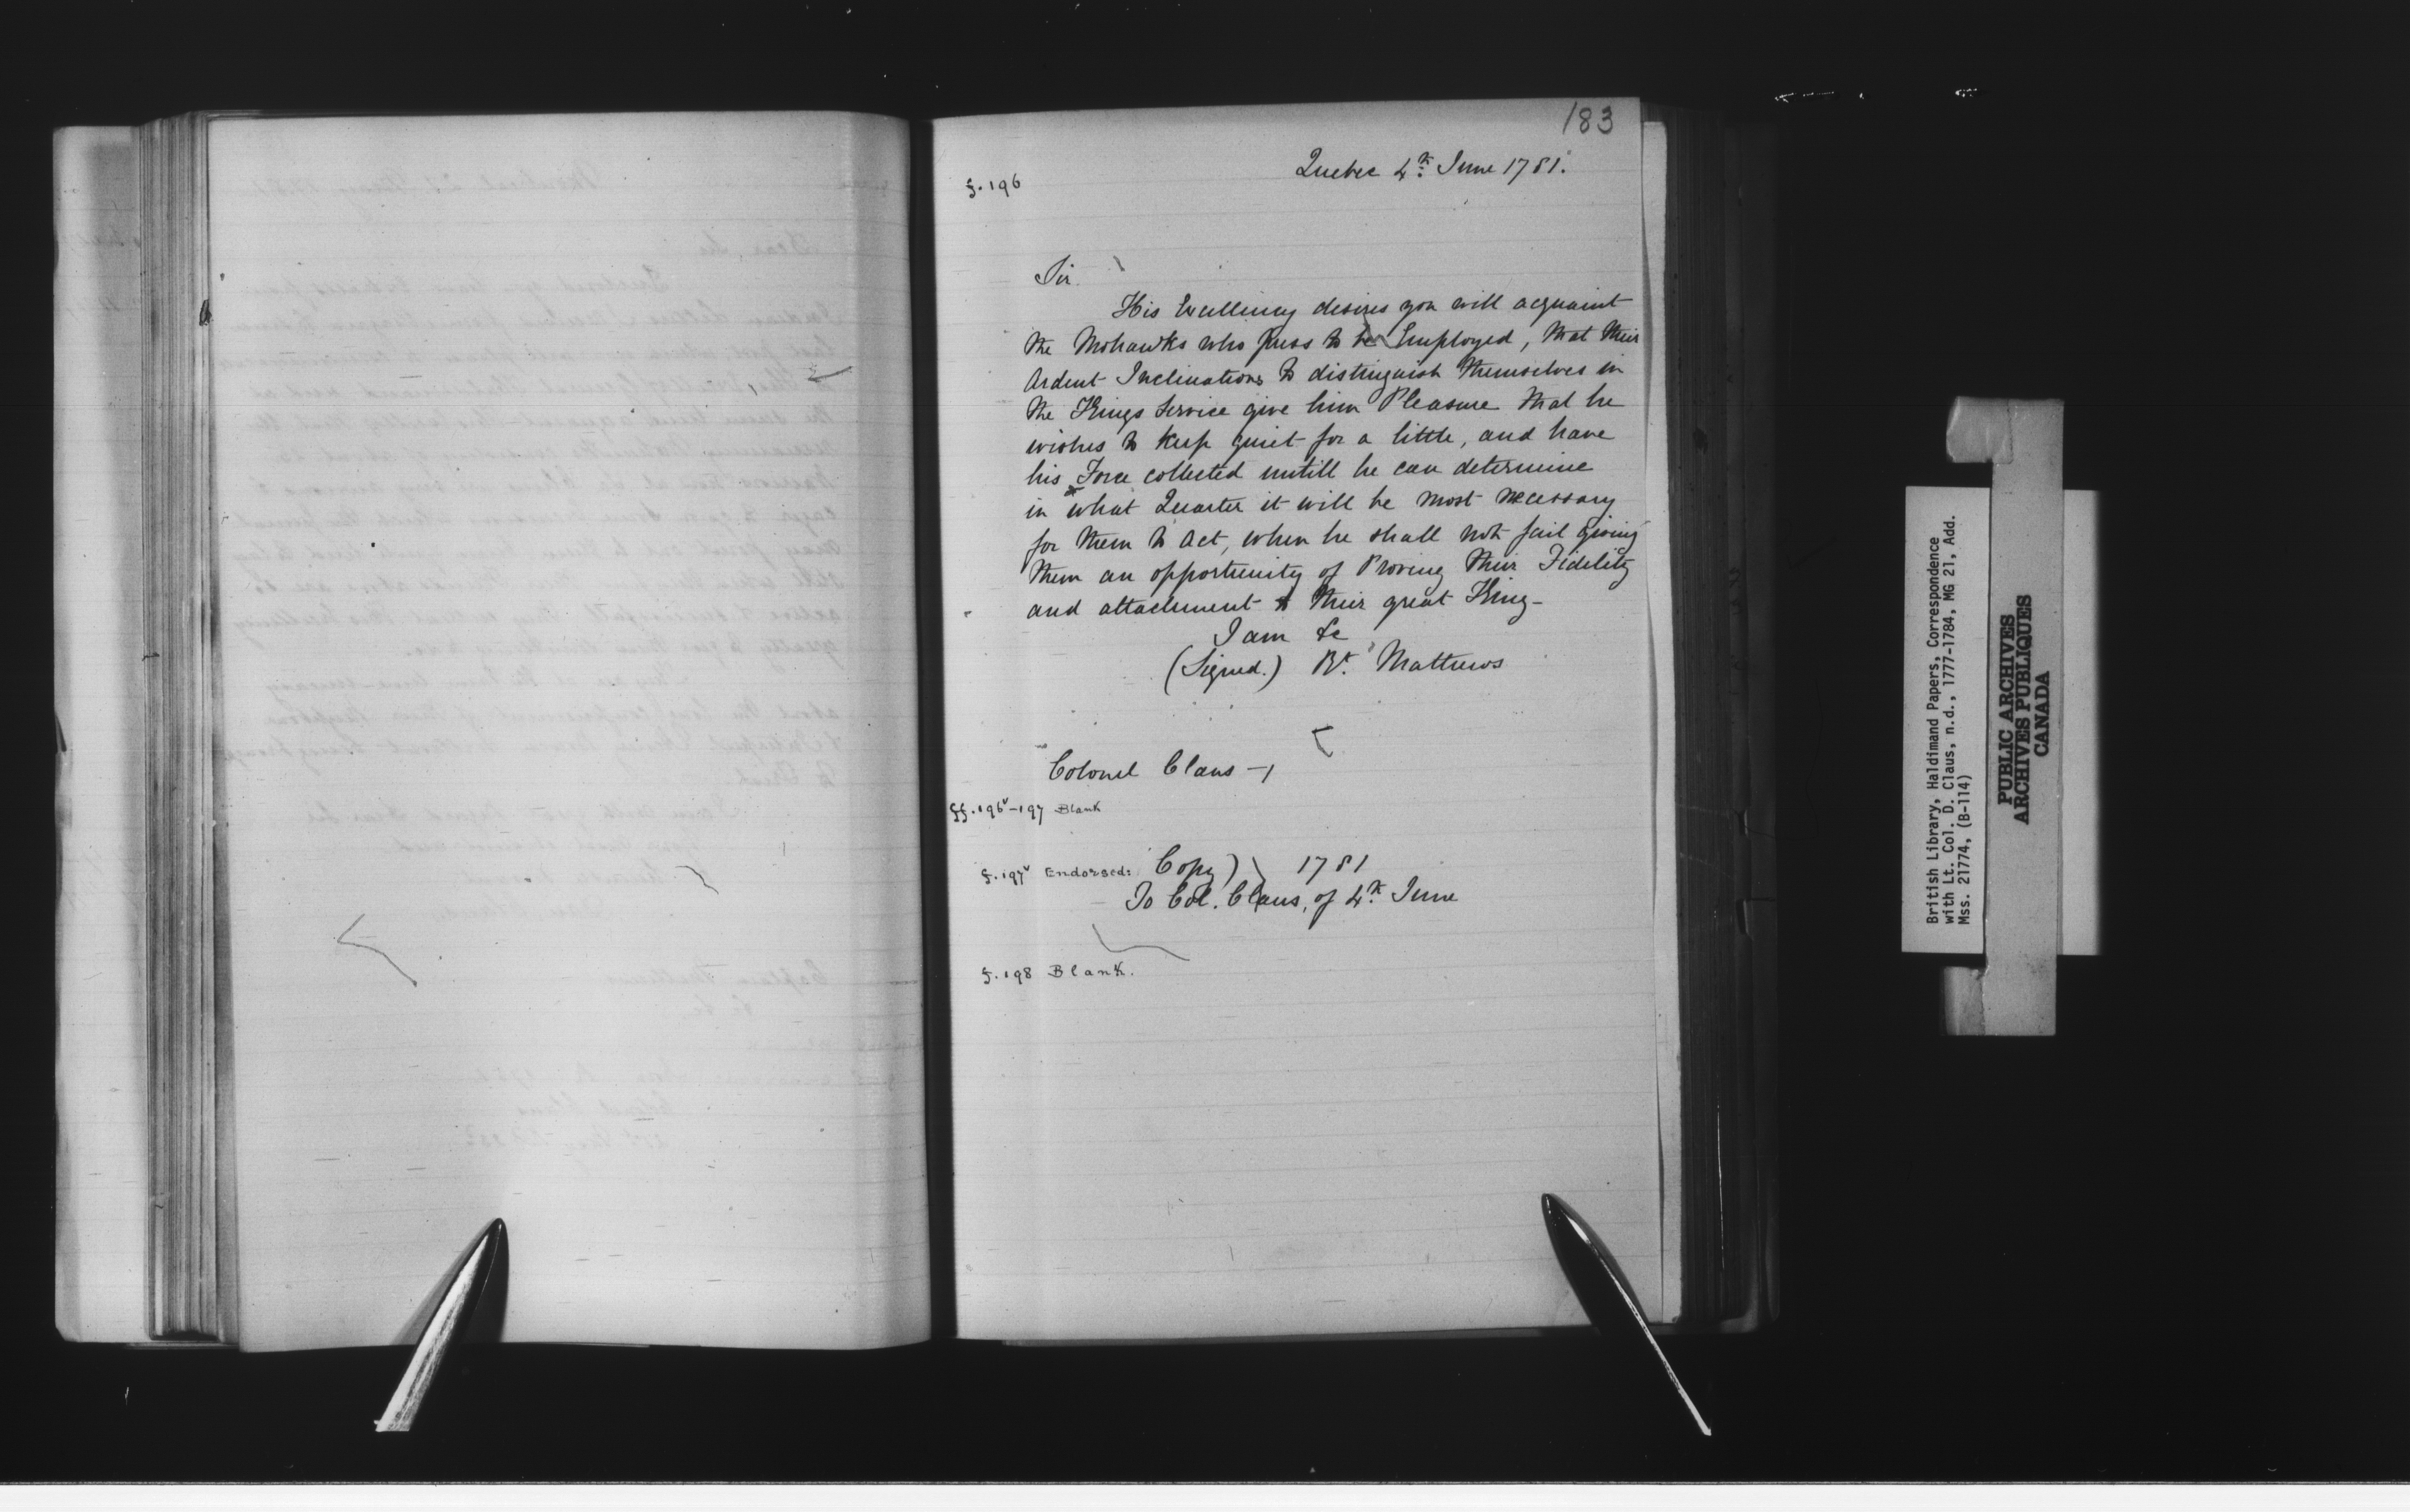 183
f. 196
Quebec 4th June 1781.
Sir
His Excellency desires you will acquaint
the Mohawks who press to be Employed, that their
Ardent Inclinations to distinguish themselves in
the Kings Service give him Pleasure that he
wishes to keep quiet for a little, and have
his Force collected untill he can determine
in what Quarter it will be most necessary
for them to Act, when he shall not fail giving
them an opportunity of Proving their Fidelity
and attachment to their great King-
I am &c
(Signed.) Rt. Mathews
Colonel Claus -
ff. 196v-197 Blank
f. 197v Endorsed: Copy) 1781
To Col. Claus, of 4th June
f. 198 Blank.
British Library, Haldimand Papers, Correspondence
with Lt. Col. D. Claus, n.d., 1777-1784, MG 21, Add.
Mss. 21774, (B-114)
PUBLIC ARCHIVES
ARCHIVES PUBLIQUES
CANADA